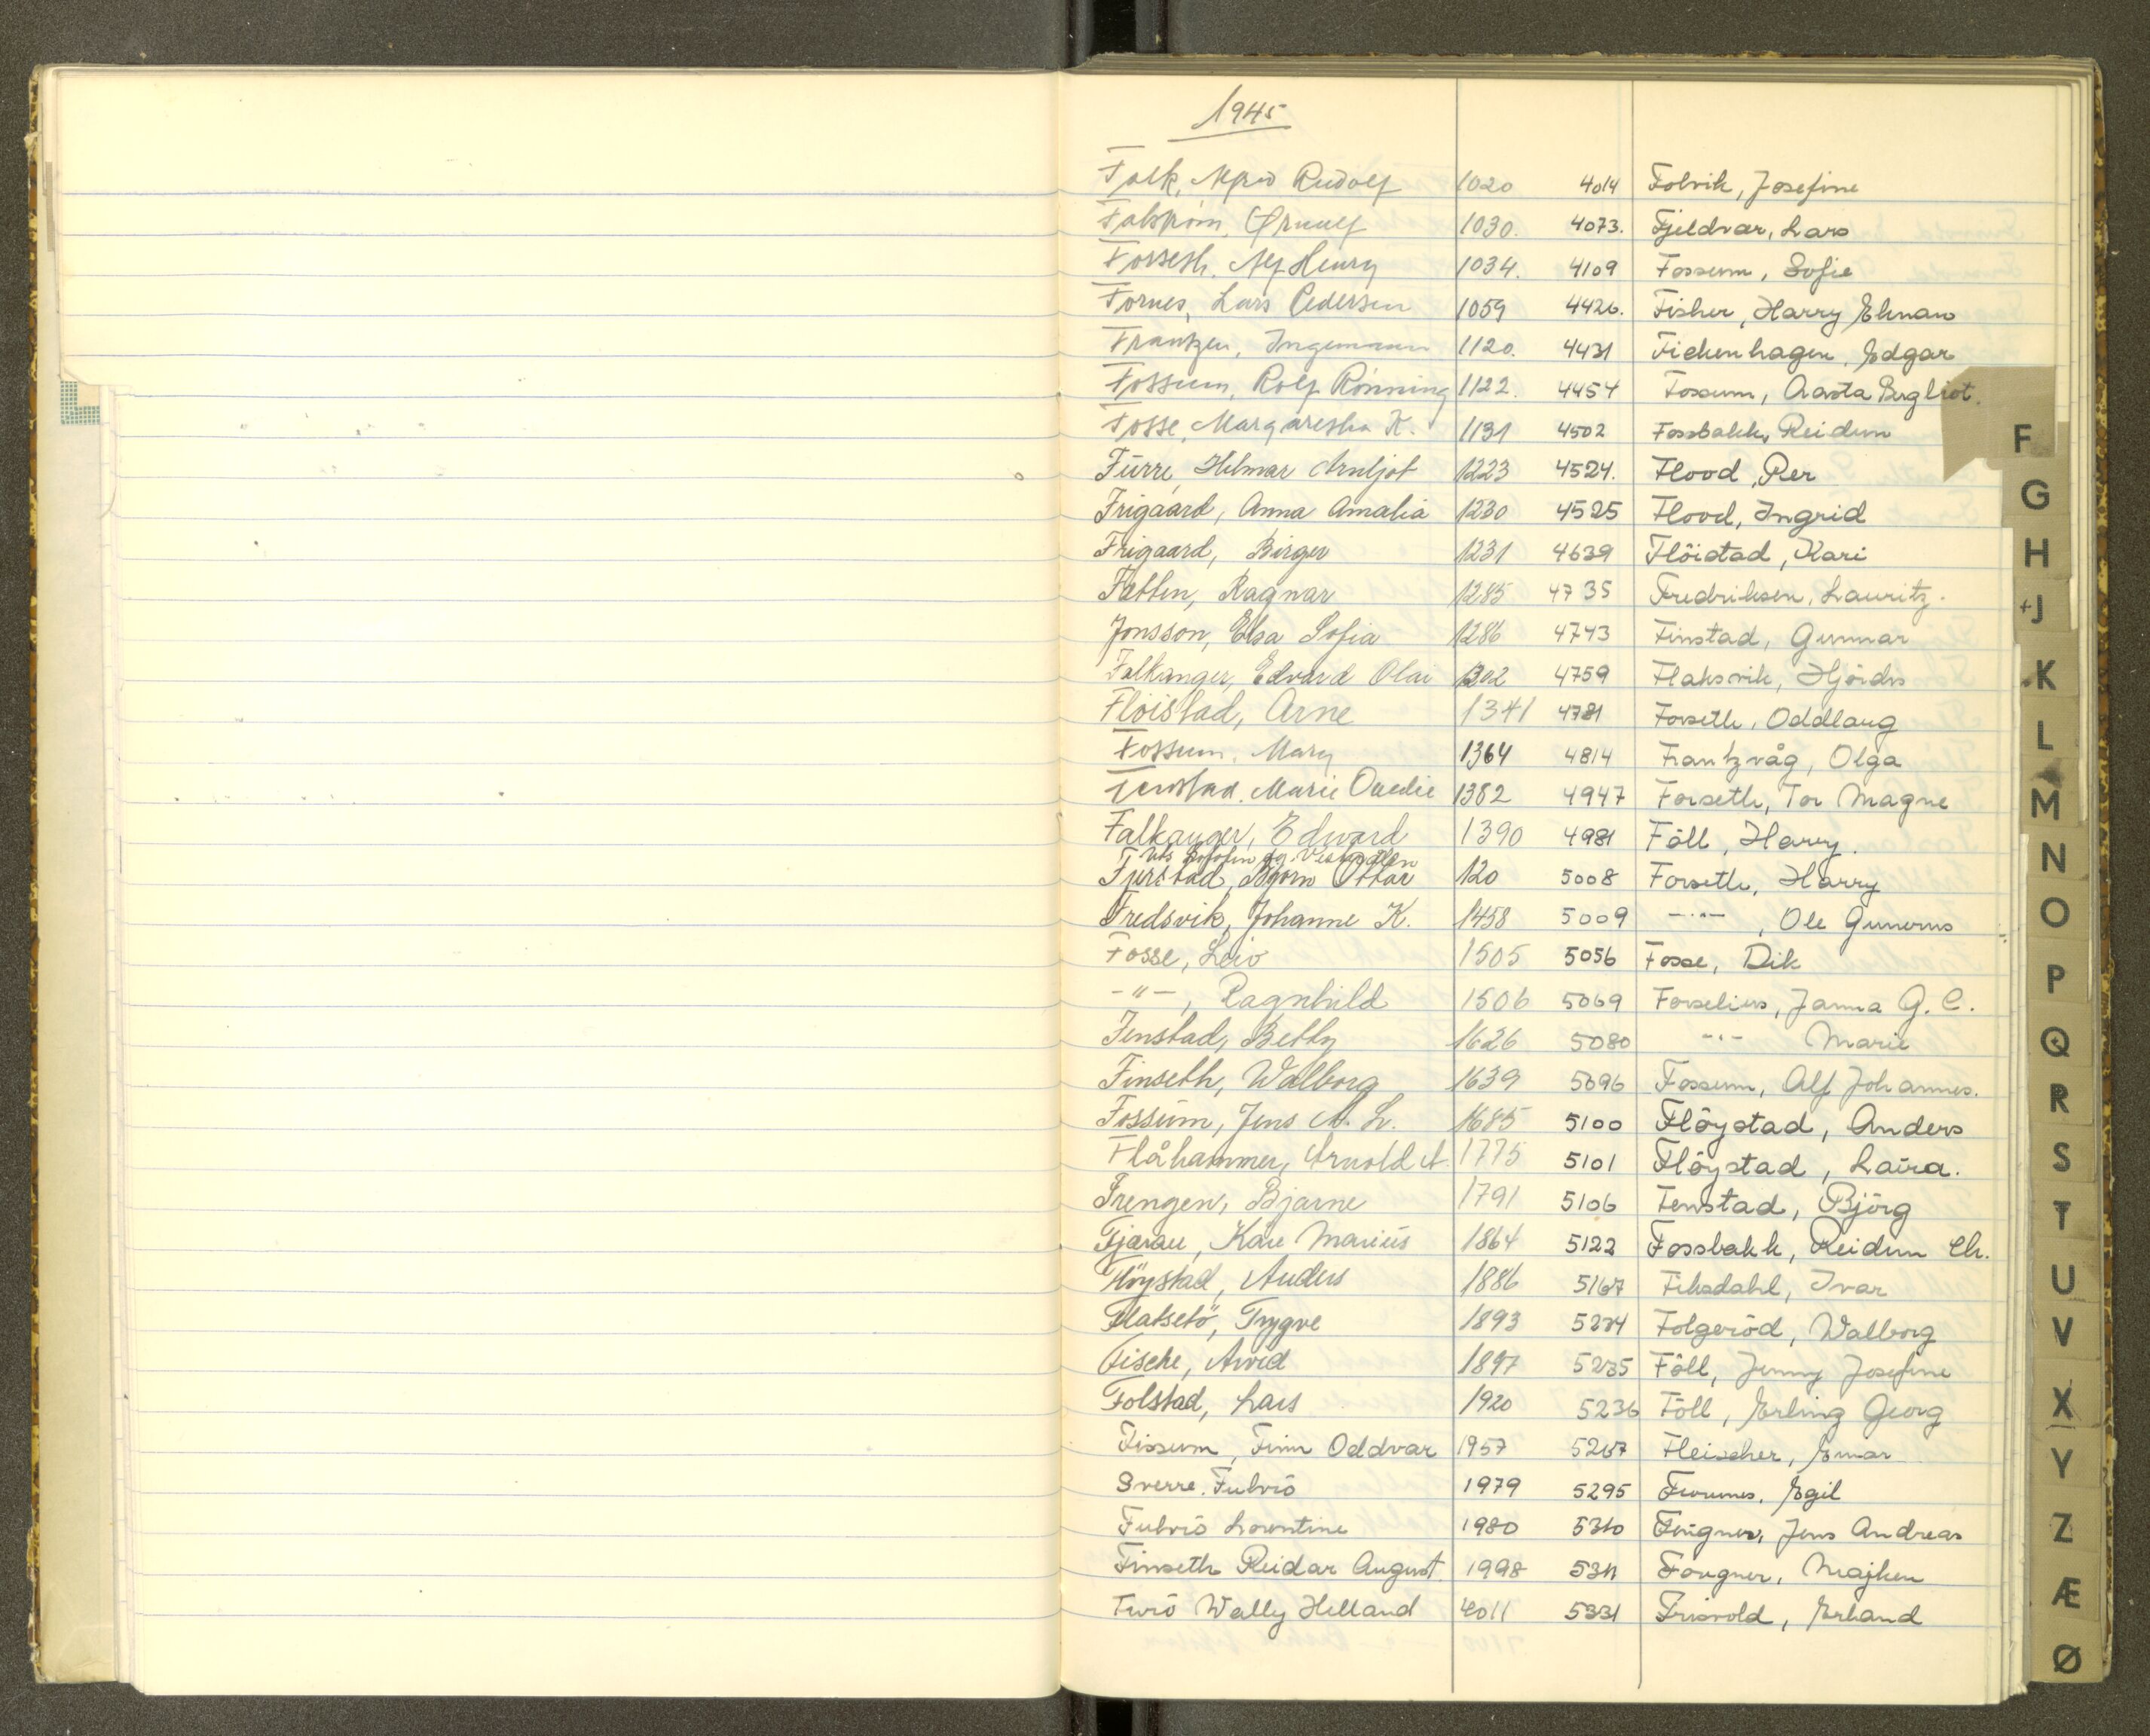 1945
Falk, Alfred Rudolf 1020 4014 Folvik, Josefine
Falstrøm, Ørnulf 1030. 4073. Fjeldvær, Lars
Forseth, Alf Henry 1034. 4109 Fossum, Sofie
Fornes, Lars Pedersen 1059 4426. Fisher, Harry Elman
Frantzen, Ingemann 1120. 4431 Fickenhagen, Edgar
Fossum, Rolf Rönning 1122. 4454 Fossum, Aasta Bergliot.
Fosse, Margaretha K. 1131 4502 Fossbakk, Reidun
Fürre, Hilmar Arnljot 1223 4524. Flood, Per
Frigaard, Anna Amalia 1230 4525 Flood, Ingrid
Frigaard, Birger 1231 4639 Flöistad, Kari
Fatten, Ragnar 1285 4735 Fredriksen, Lauritz.
Jonsson, Elsa Sofia 1286 4743 Finstad, Gunnar
Falkanger, Edvard Olai 1302 4759 Flaksvik, Hjördis
Flöistad, Arne 1341 4781 Forseth, Oddlaug
Fossum, Mary 1364 4814 Frantzvåg, Olga
Fenstad, Marie Ovedie 1382 4947 Forseth, Tor Magne
Falkanger, Edward 1390 4981 Föll, Harry.
Uts Lofoten og Vesterålen
Fjerstad, Bjørn Ottar 120 5008 Forseth, Harry
Fredsvik, Johanne K. 1458 5009 -"-, Ole Gunerius
Fosse, Leiv 1505 5056 Fosse, Dik
-"-, Ragnhild 1506 5069 Forselius, Janna G. C.
Fenstad, Betty 1626 5080 -"- Marie
Finseth, Walborg 1639 5096 Fossum, Alf Johannes.
Fossum, Jens M. L. 1685 5100 Flöystad, Anders
Flåhammer, Arnold A. 1775 5101 Flöystad, Laura.
Frengen, Bjarne 1791 5106 Fenstad, Björg
Fjærau, Kåre Marius 1864 5122 Fossbakk, Reidun Ch.
Flöystad, Anders 1886 5167 Fiksdahl, Ivar
Flatsetö, Trygve 1893 5234 Folgeröd, Walborg
Fiske, Arvid 1897 5235 Föll, Jenny Josefine
Folstad, Lars 1920 5236 Föll, Erling Georg
Fissum, Finn Oddvar 1957 5267 Fleischer, Einar
Sverre. Fulviö 1979 5295 Furunes, Egil
Fulviö Lorentine 1980 5310 Fougner, Jens Andreas
Finseth Reidar August. 1998 5311 Fougner, Majken
Furö Wally Helland 4011 5331 Frisvold, Erland
F
G
H
J
K
L
M
N
O
P
Q
R
S
T
U
V
X
Y
Z
Æ
Ø